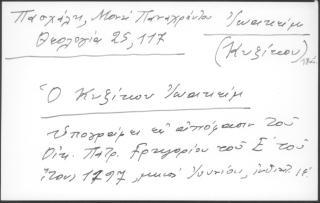 Πασχάλη, Μονή Παναχράντου Ἰωακεὶμ
Θεολογία 25, 117 (Κυζίκου)
Ὁ Κυζίκου Ἰωακεὶμ
ὑπογράφει εἰς ἀπόφασιν τοῦ
Οἰκ. Πατρ. Γρηγορίου τοῦ Ε΄ τοῦ
ἔτους 1797, μηνὶ Ἰουνίου, ἰνδικτ. ιε΄